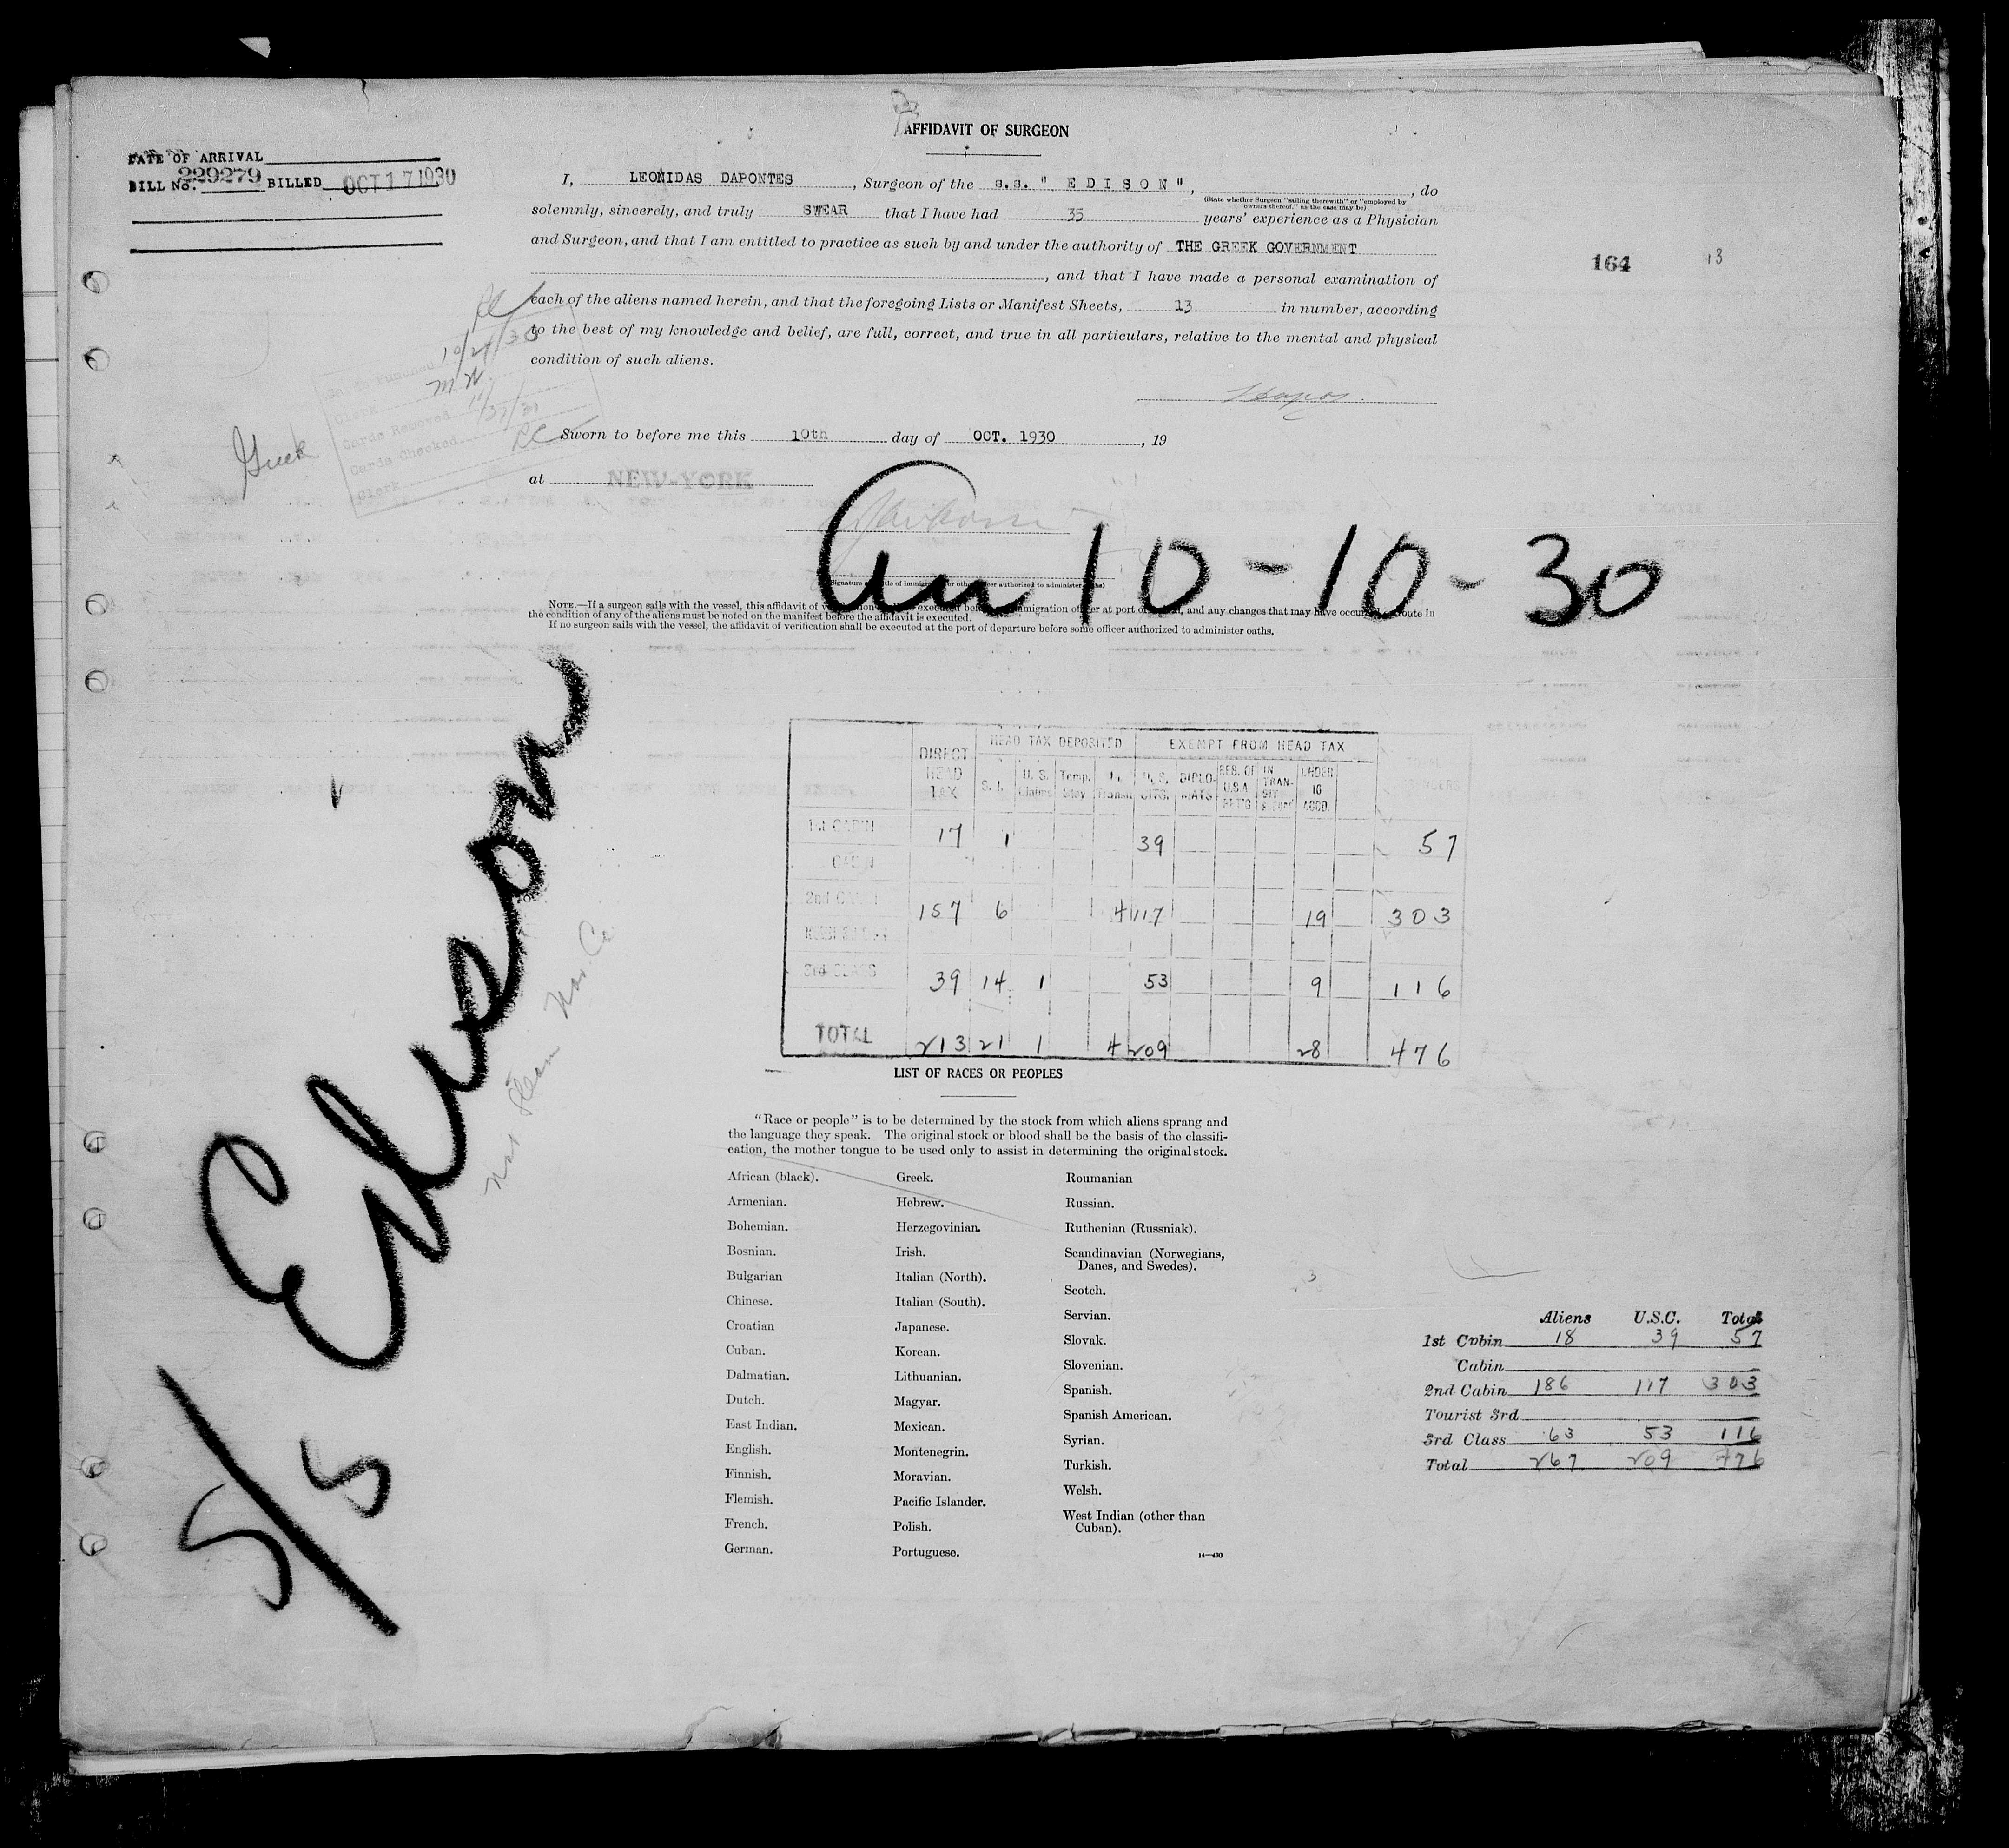 AFFIDAVIT OF SURGEON
DATE OF ARRIVAL
BILL No. 229279 BILLED OCT 17 1930
I, LEONIDAS DAPONTES, Surgeon of the s.s. " E D I S O N", , do
(State whether Surgeon "sailing therewith" or "employed by owners thereof," as the case may be)
solemnly, sincerely, and truly SWEAR that I have had 35 years' experience as a Physician
and Surgeon, and that I am entitled to practice as such by and under the authority of THE GREEK GOVERNMENT
, and that I have made a personal examination of
164 13
each of the aliens named herein, and that the foregoing Lists or Manifest Sheets, 13 in number, according
to the best of my knowledge and belief, are full, correct, and true in all particulars, relative to the mental and physical
condition of such aliens.
Cards Punched 10/24/30
Clerk MW
Cards Removed
Cards Checked
Clerk
Greek
Sworn to before me this 10th day of OCT. 1930, 19
at NEW-YORK
Arr 10-10-30
NOTE.—If a surgeon sails with the vessel, this affidavit of before immigration officer at port of and any changes that may have occurred en route in
the condition of any of the aliens must be noted on the manifest before the affidavit is executed.
If no surgeon sails with the vessel, the affidavit of verification shall be executed at the port of departure before some officer authorized to administer oaths.
S/S Edison
DIRECT HEAD TAX HEAD TAX DEPOSITED EXEMPT FROM HEAD TAX
S. I. U. S. Claims Temp. Stay In Transit U. S. CITS. DIPLO-MATS RES. OF U.S.A RET'G IN TRAN-SIT UNDER 16 ACCD.
1st CABIN 17 1 39 57
CABIN
2nd CABIN 157 6 4 117 19 303
3rd CLASS 39 14 1 53 9 116
TOTAL 213 21 1 4 209 28 476
LIST OF RACES OR PEOPLES
"Race or people" is to be determined by the stock from which aliens sprang and
the language they speak. The original stock or blood shall be the basis of the classifi-
cation, the mother tongue to be used only to assist in determining the original stock.
African (black).
Armenian.
Bohemian.
Bosnian.
Bulgarian
Chinese.
Croatian
Cuban.
Dalmatian.
Dutch.
East Indian.
English.
Finnish.
Flemish.
French.
German.
Greek.
Hebrew.
Herzegovinian.
Irish.
Italian (North).
Italian (South).
Japanese.
Korean.
Lithuanian.
Magyar.
Mexican.
Montenegrin.
Moravian.
Pacific Islander.
Polish.
Portuguese.
Roumanian
Russian.
Ruthenian (Russniak).
Scandinavian (Norwegians,
Danes, and Swedes).
Scotch.
Servian.
Slovak.
Slovenian.
Spanish.
Spanish American.
Syrian.
Turkish.
Welsh.
West Indian (other than
Cuban).
14—430
Aliens U.S.C. Total
1st Cabin 18 39 57
Cabin
2nd Cabin 186 117 303
Tourist 3rd
3rd Class 63 53 116
Total 267 209 476